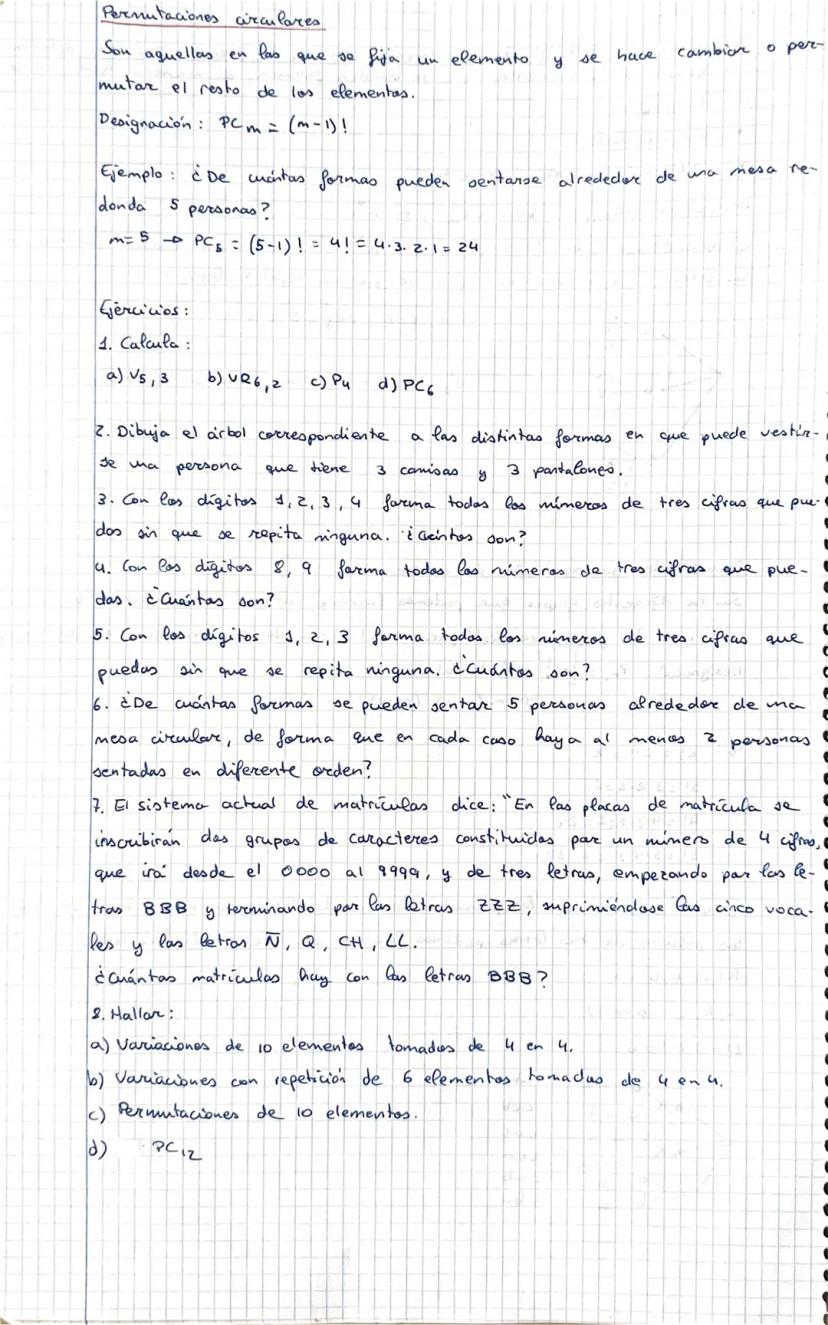 Permutaciones circulares
Son aquellas en las que se fija un elemento y se hace cambiar o per-
mutar el resto de los elementos.
Designación: PCm = (m-1)!
Ejemplo: ¿De cuántas formas pueden sentarse alrededor de una mesa re-
donda 5 personas?
m=5 → PC5 = (5-1)! = 4! = 4·3·2·1 = 24
Ejercicios:
1. Calcula:
a) V5,3 b) VR6,2 c) P4 d) PC6
2. Dibuja el árbol correspondiente a las distintas formas en que puede vestir-
se una persona que tiene 3 camisas y 3 pantalones.
3. Con los dígitos 1, 2, 3, 4 forma todos los números de tres cifras que pue-
das sin que se repita ninguna. ¿Cuántos son?
4. Con los dígitos 8, 9 forma todos los números de tres cifras que pue-
das. ¿Cuántos son?
5. Con los dígitos 1, 2, 3 forma todos los números de tres cifras que
puedas sin que se repita ninguna. ¿Cuántos son?
6. ¿De cuántas formas se pueden sentar 5 personas alrededor de una
mesa circular, de forma que en cada caso haya al menos 2 personas
sentadas en diferente orden?
7. El sistema actual de matrículas dice: "En las placas de matrícula se
inscribirán dos grupos de caracteres constituidos por un número de 4 cifras,
que irá desde el 0000 al 9999, y de tres letras, empezando por las le-
tras BBB y terminando por las letras ZZZ, suprimiéndose las cinco voca-
les y las letras Ñ, Q, CH, LL.
¿Cuántas matrículas hay con las letras BBB?
8. Hallar:
a) Variaciones de 10 elementos tomados de 4 en 4.
b) Variaciones con repetición de 6 elementos tomadas de 4 en 4.
c) Permutaciones de 10 elementos.
d) PC12